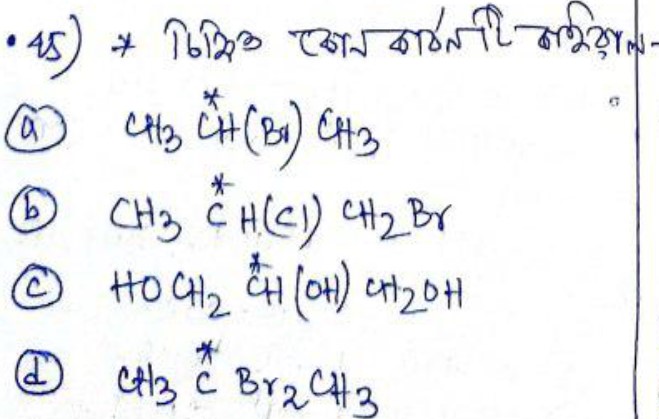 • ২৫) * চিহ্নিত কোন কার্বনটি কাইরাল-
(a) CH3 C*H(Br) CH3
(b) CH3 C*H(Cl) CH2Br
(c) HOCH2 C*H(OH) CH2OH
(d) CH3 C*Br2CH3